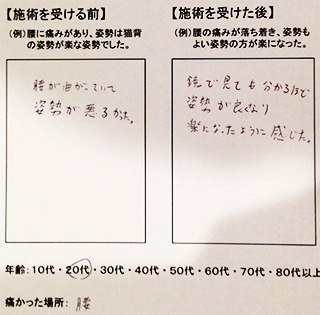 【施術を受ける前】
(例)腰に痛みがあり、姿勢は猫背
の姿勢が楽な姿勢でした。
腰が曲がっていて
姿勢が悪るかった。
【施術を受けた後】
(例)腰の痛みが落ち着き、姿勢も
よい姿勢の方が楽になった。
鏡で見ても分かるほど
姿勢が良くなり
楽になったように感じた。
年齢:10代・20代・30代・40代・50代・60代・70代・80代以上
痛かった場所: 腰